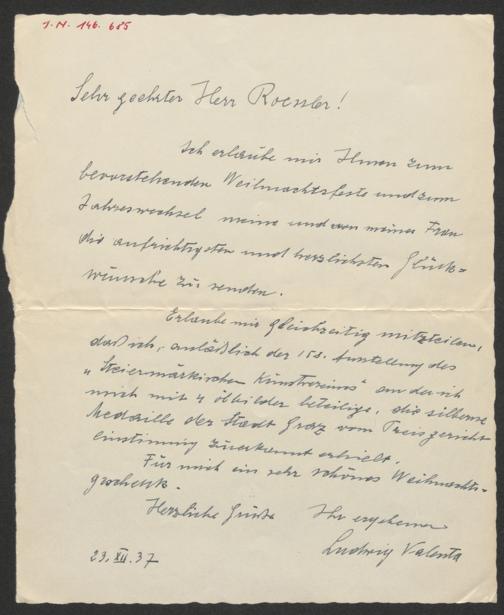 I.N. 146.685
Sehr geehrter Herr Roessler!
Ich erlaube mir Ihnen zum
bevorstehenden Weihnachtsfeste und zum
Jahreswechsel meine und von meiner Frau
die aufrichtigsten und herzlichsten Glück=
wünsche zu senden.
Erlaube mir gleichzeitig mitzuteilen,
daß ich, anläßlich der 158. Austellung des
"Steiermärkischen Kunstvereins" an der ich
mich mit 4 Ölbilder beteilige, die silberne
Medaille der Stadt Graz vom Preisgericht
einstimmig zuerkannt erhielt.
Für mich ein sehr schönes Weihnachts-
geschenk.
Herzliche Grüße Ihr ergebener
Ludwig Valenta
23. XII. 37